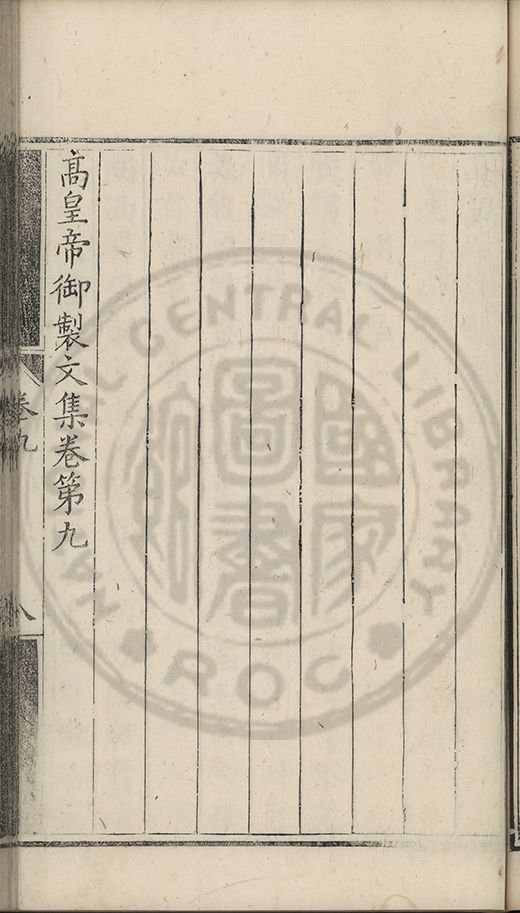 高皇帝御製文集卷第九
卷九
八
NATIONAL CENTRAL LIBRARY
ROC
國家圖書館